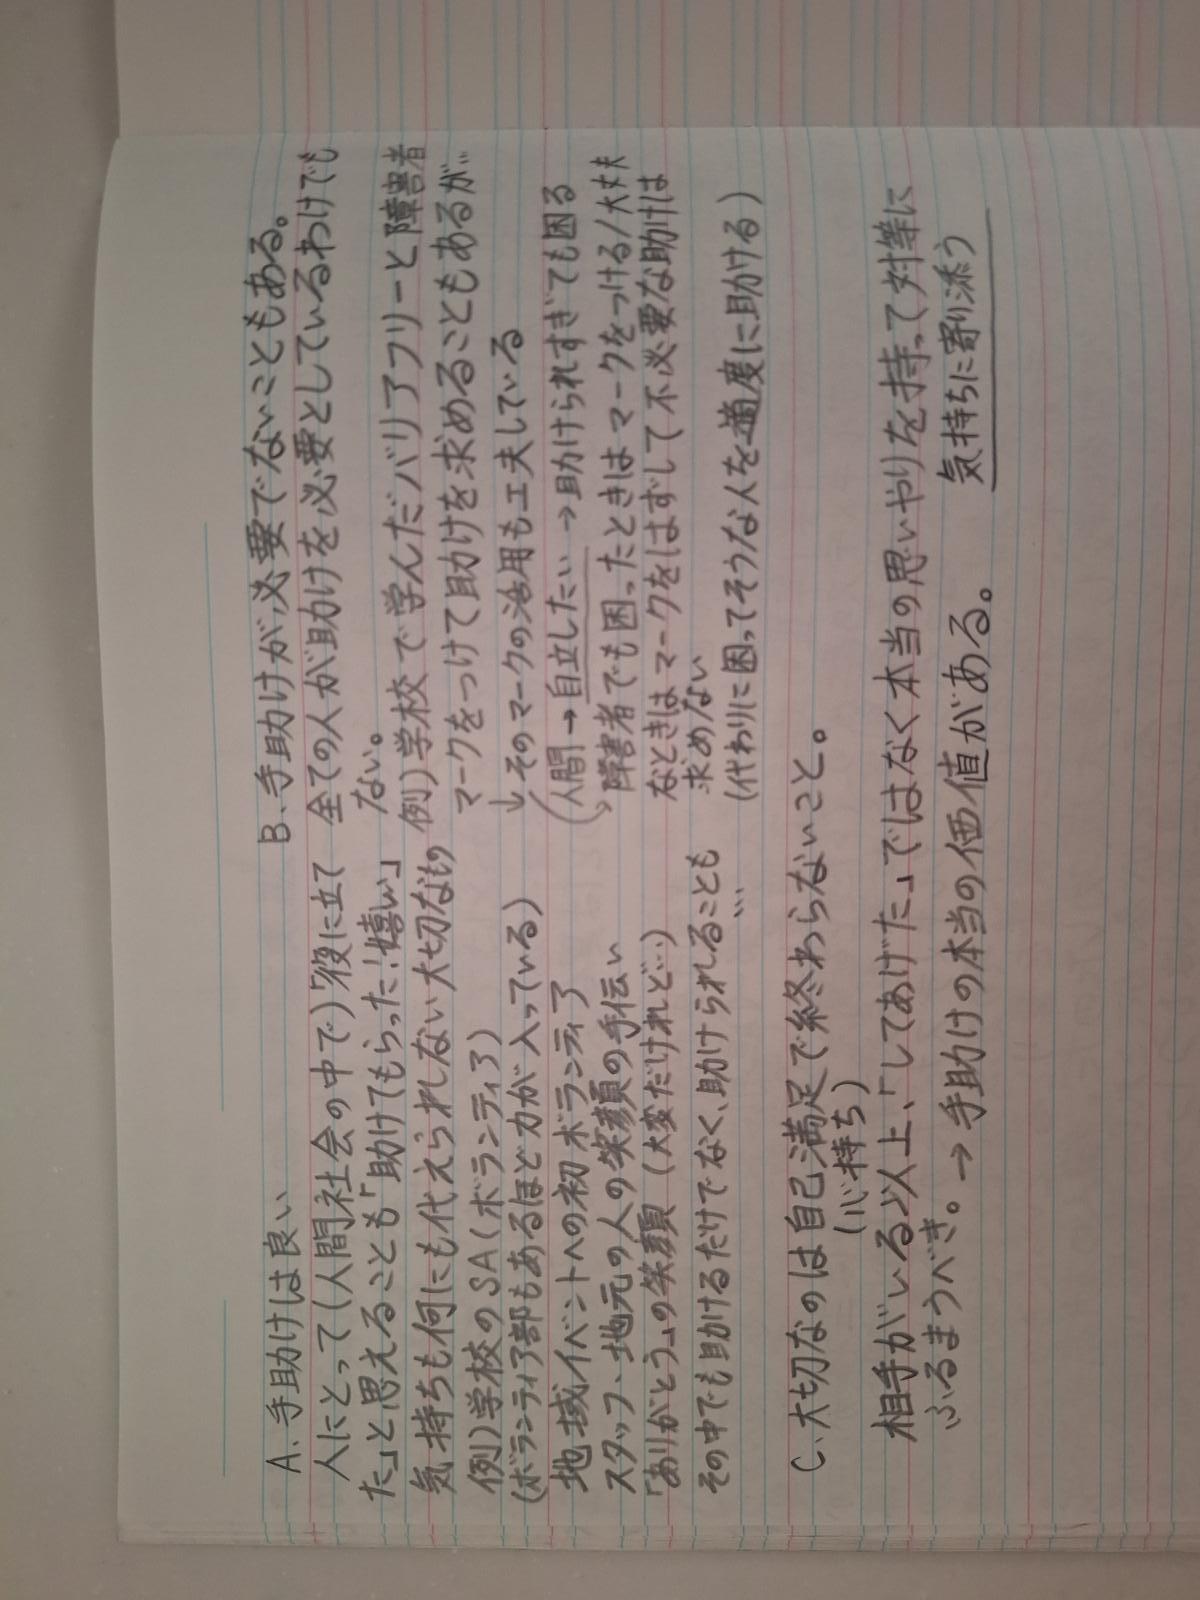 A. 手助けは良い
人にとって(人間社会の中で)「役に立て
た」と思えることも「助けてもらった!嬉しい」
気持ちも何にも代えられない大切なもの
例)学校のSA(ボランティア)
(ボランティア部もあるほど力が入っている)
地域イベントへの初ボランティア
スタッフ、地元の人の笑顔の手伝い
「ありがとう」の笑顔(大変だけれど…)
その中でも助けるだけでなく、助けられることも
…
B. 手助けが必要でないこともある。
全ての人が助けを必要としているわけでも
ない。
例)学校で学んだバリアフリーと障害者
マークをつけて助けを求めることもあるが…
↳そのマークの活用も工夫している
(人間→自立したい→助けられすぎても困る
↳障害者でも困ったときはマークをつける/大丈夫
なときはマークをはずして不必要な助けは
求めない
(代わりに困ってそうな人を適度に助ける)
C. 大切なのは自己満足で終わらないこと。
(心持ち)
相手がいる以上、「してあげた」ではなく本当の思いやりを持って対等に
ふるまうべき。→手助けの本当の価値がある。
気持ちに寄り添う